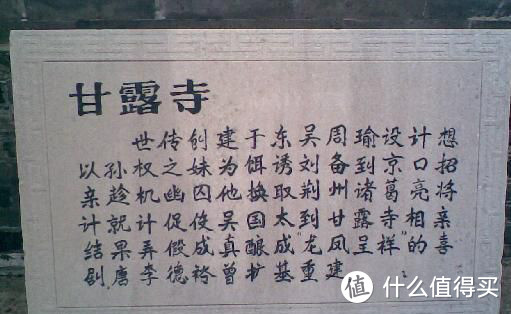 甘露寺
世传创建于东吴周瑜设计想
以孙权之妹为饵诱刘备到京口招
亲趁机幽囚他换取荆州诸葛亮将
计就计促使吴国太到甘露寺相亲
结果弄假成真酿成"龙凤呈祥"的喜
剧唐李德裕曾扩基重建
值 什么值得买